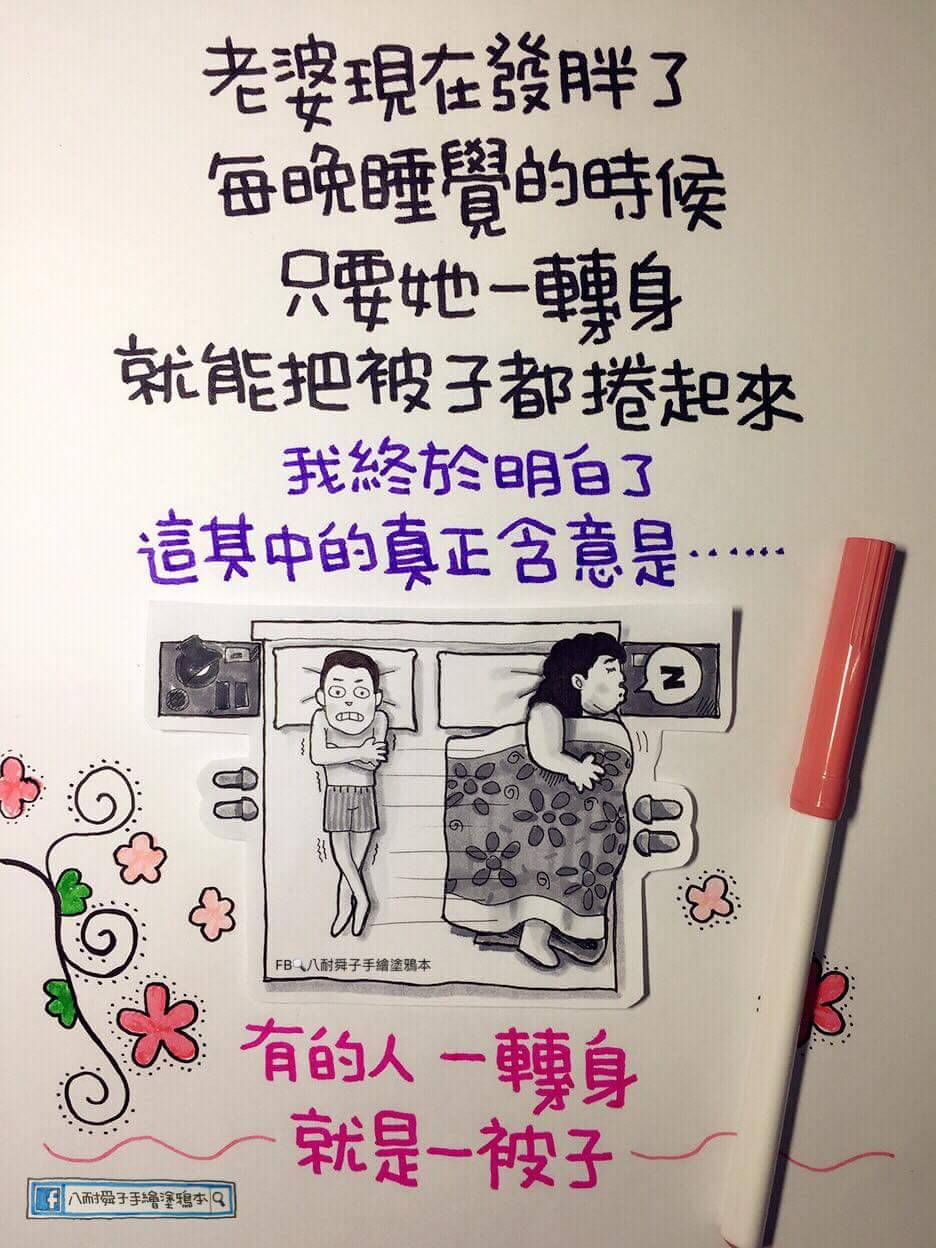 老婆現在發胖了
每晚睡覺的時候
只要她一轉身
就能把被子都捲起來
我終於明白了
這其中的真正含意是……
N
FB🔍八耐舜子手繪塗鴉本
有的人一轉身
就是一被子
f 八耐舜子手繪塗鴉本